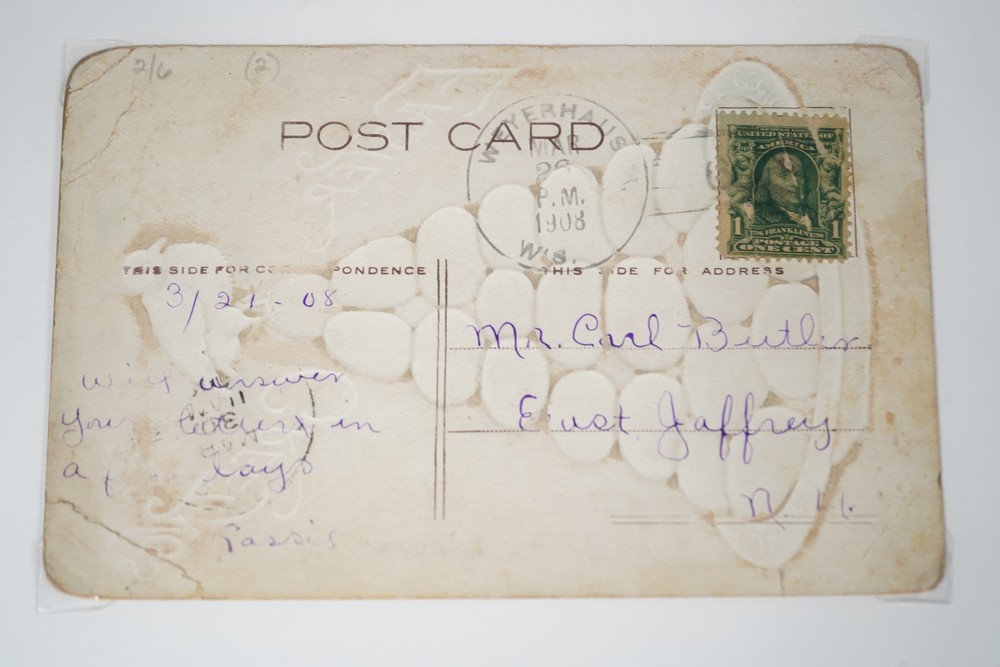 2/6 (2)
POST CARD
WEYERHAUSER
MAR
26
P.M.
1908
WIS.
UNITED STATES OF
AMERICA
1 FRANKLIN 1
POSTAGE
ONE CENT
THIS SIDE FOR CORRESPONDENCE
THIS SIDE FOR ADDRESS
3/21-08
will answer
your letters in
a few days
Mr. Carl Butler
East Jaffrey
N.H.